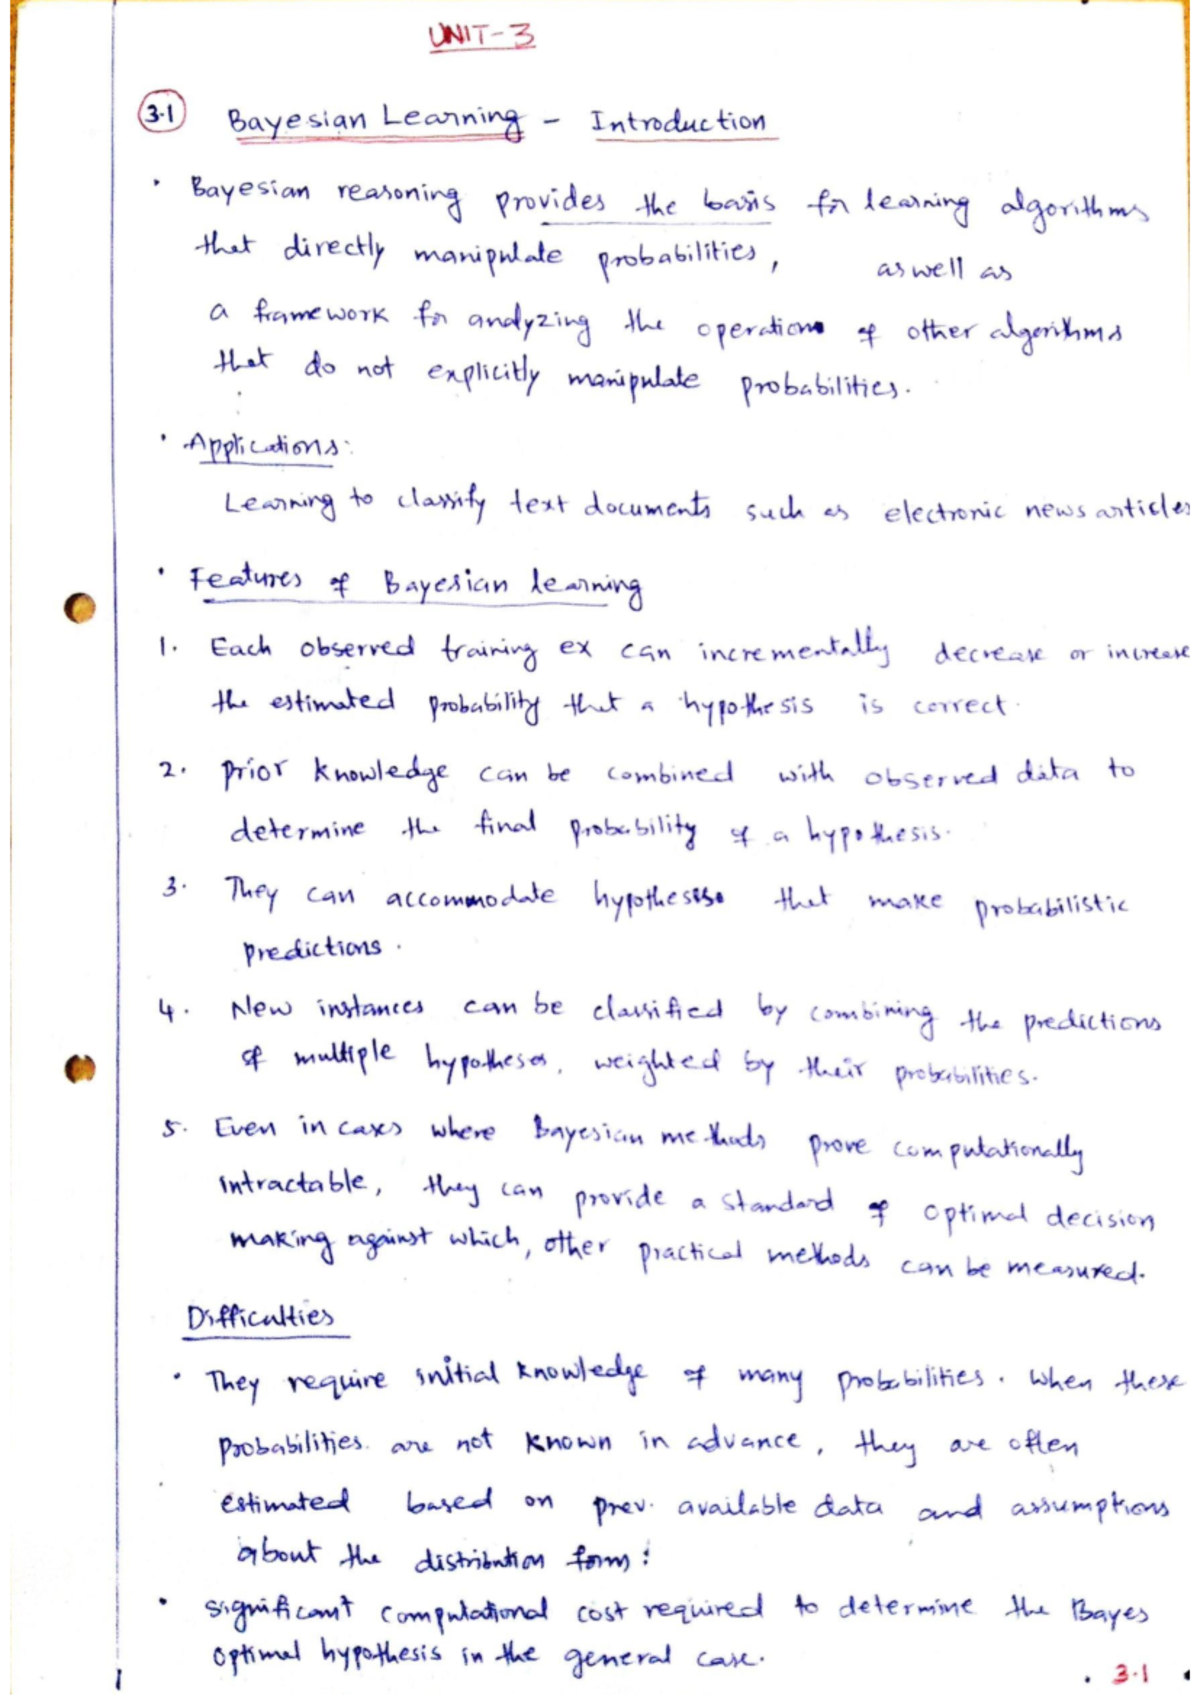 UNIT-3
3.1 Bayesian Learning - Introduction
· Bayesian reasoning provides the basis for learning algorithms
that directly manipulate probabilities, as well as
a framework for analyzing the operation of other algorithms
that do not explicitly manipulate probabilities.
· Applications:
Learning to classify text documents such as electronic news articles
· Features of Bayesian learning
1. Each observed training ex can incrementally decrease or increase
the estimated probability that a hypothesis is correct.
2. Prior knowledge can be combined with observed data to
determine the final probability of a hypothesis.
3. They can accommodate hypotheses that make probabilistic
predictions.
4. New instances can be classified by combining the predictions
of multiple hypotheses, weighted by their probabilities.
5. Even in cases where Bayesian methods prove computationally
intractable, they can provide a standard of optimal decision
making against which, other practical methods can be measured.
Difficulties
· They require initial knowledge of many probabilities. When these
probabilities are not known in advance, they are often
estimated based on prev. available data and assumptions
about the distribution form:
· significant computational cost required to determine the Bayes
optimal hypothesis in the general case.
1
3.1